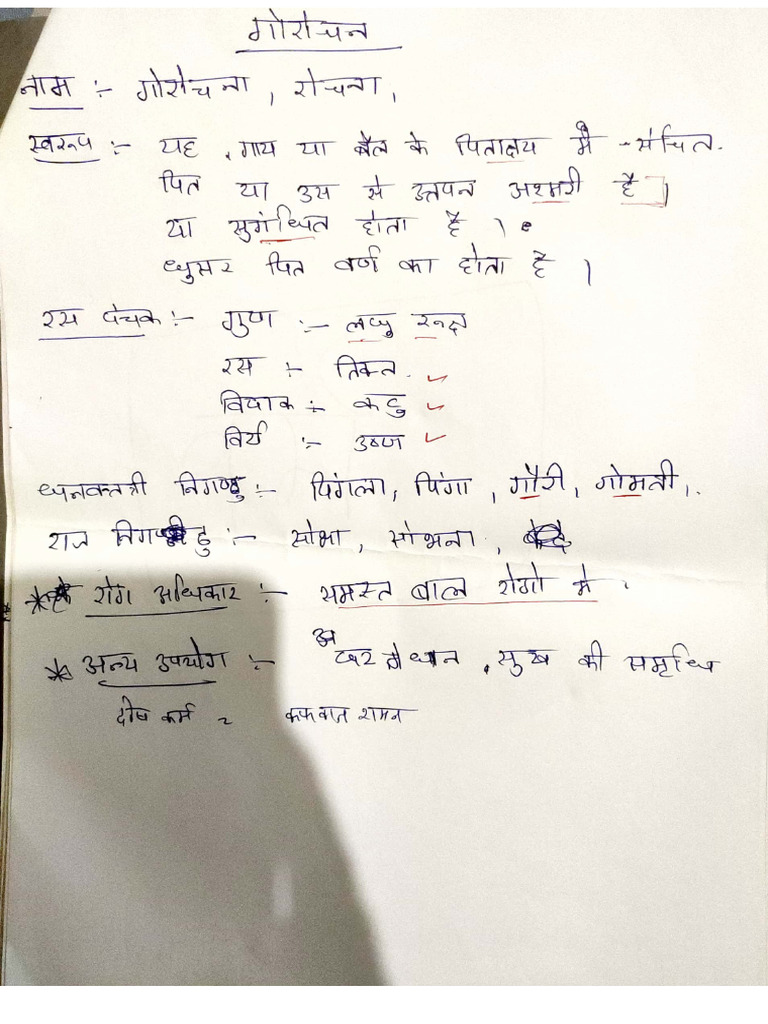 गोरोचन
नाम :- गोरोचना , रोचना ,
स्वरूप :- यह , गाय या बैल के पिताक्षय मे संचित
पित या उस से उत्तपन अश्मरी है ।
या सुगंधित होता है ।
धुसर पित वर्ण का होता है ।
रस पंचक :- गुण :- लघु रूक्ष
रस :- तिक्त
विपाक :- कटु
विर्य :- उष्ण
धनवन्तत्री निगण्टु :- पिंगला, पिंगा , गौरी, गोमती,
राज :- सोभा , सोभना ,
रोग अधिकार :- समस्त बाल रोगो मे
अन्य उपयोग :- सुख की समृधि
दोष कर्म = कफवात शमन